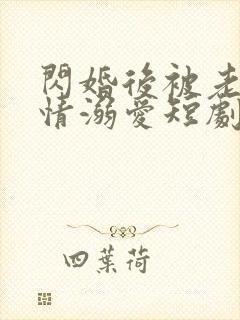 閃婚後被老
情溺愛短劇
四葉荷